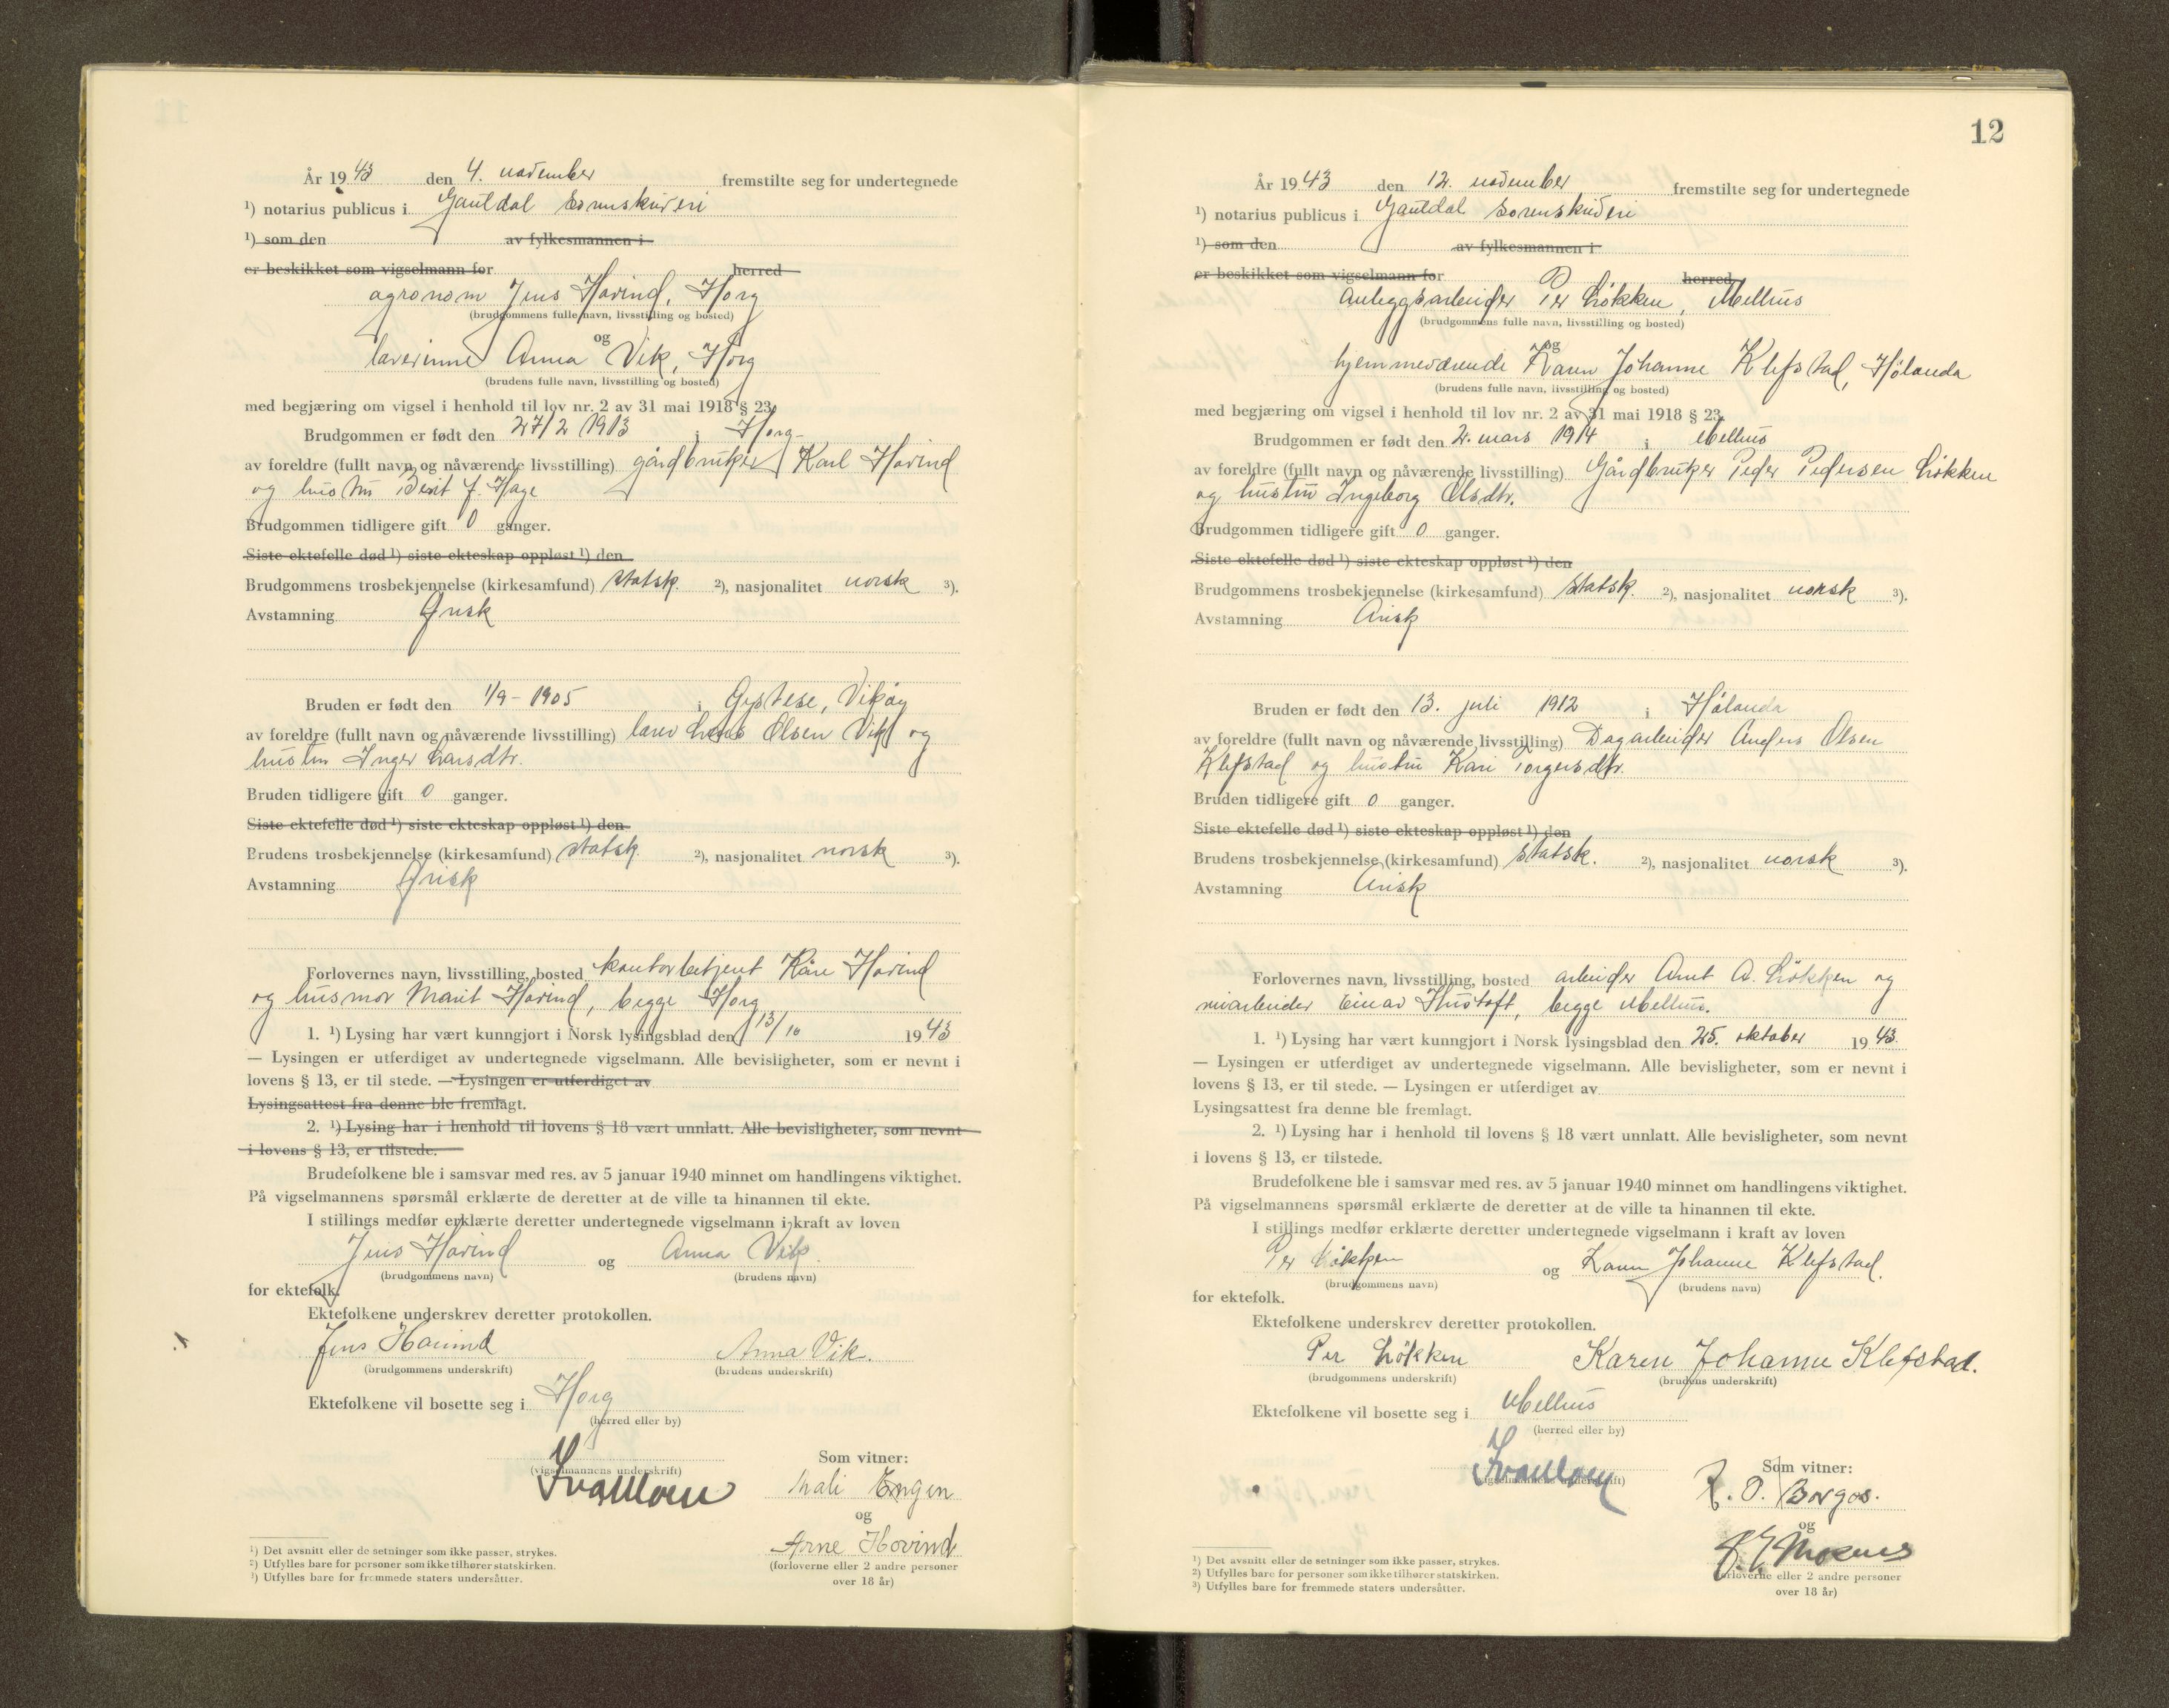 År 1943 den 4. november fremstilte seg for undertegnede
¹) notarius publicus i Gauldal Sorenskriveri
¹) som den av fylkesmannen i
er beskikket som vigselmann for herred
agronom Jens Hovind, Horg
(brudgommens fulle navn, livsstilling og bosted)
og
lærerinne Anna Vik, Horg
(brudens fulle navn, livsstilling og bosted)
med begjæring om vigsel i henhold til lov nr. 2 av 31 mai 1918 § 23.
Brudgommen er født den 27/2 1913 i Horg
av foreldre (fullt navn og nåværende livsstilling) gårdbruker Karl Hovind
og hustru Berit J. Hage
Brudgommen tidligere gift 0 ganger.
Siste ektefelle død ¹) siste ekteskap oppløst ¹) den
Brudgommens trosbekjennelse (kirkesamfund) statsk. ²), nasjonalitet norsk ³).
Avstamning Arisk
Bruden er født den 1/9 - 1905 i Øystese, Vikøy
av foreldre (fullt navn og nåværende livsstilling) lærer Lars Olsen Vik og
hustru Inger Larsdtr.
Bruden tidligere gift 0 ganger.
Siste ektefelle død ¹) siste ekteskap oppløst ¹) den
Brudens trosbekjennelse (kirkesamfund) statsk. ²), nasjonalitet norsk ³).
Avstamning Arisk
Forlovernes navn, livsstilling, bosted kontorbetjent Kåre Hovind
og husmor Marit Hovind, begge Horg
1. ¹) Lysing har vært kunngjort i Norsk lysingsblad den 13/10 1943
— Lysingen er utferdiget av undertegnede vigselmann. Alle bevisligheter, som er nevnt i
lovens § 13, er til stede. — Lysingen er utferdiget av
Lysingsattest fra denne ble fremlagt.
2. ¹) Lysing har i henhold til lovens § 18 vært unnlatt. Alle bevisligheter, som nevnt
i lovens § 13, er tilstede.
Brudefolkene ble i samsvar med res. av 5 januar 1940 minnet om handlingens viktighet.
På vigselmannens spørsmål erklærte de deretter at de ville ta hinannen til ekte.
I stillings medfør erklærte deretter undertegnede vigselmann i kraft av loven
Jens Hovind og Anna Vik.
(brudgommens navn) (brudens navn)
for ektefolk.
Ektefolkene underskrev deretter protokollen.
Jens Hovind Anna Vik.
(brudgommens underskrift) (brudens underskrift)
Ektefolkene vil bosette seg i Horg
(herred eller by)
Som vitner:
(vigselmannens underskrift)
Mali Engen
og
Arne Hovind
(forloverne eller 2 andre personer
over 18 år)
¹) Det avsnitt eller de setninger som ikke passer, strykes.
²) Utfylles bare for personer som ikke tilhører statskirken.
³) Utfylles bare for fremmede staters undersåtter.
12
År 1943 den 12. november fremstilte seg for undertegnede
¹) notarius publicus i Gauldal sorenskriveri
¹) som den av fylkesmannen i
er beskikket som vigselmann for herred
anleggsarbeider Per Løkken, Melhus
(brudgommens fulle navn, livsstilling og bosted)
og
hjemmeværende Karen Johanne Klefstad, Hølanda
(brudens fulle navn, livsstilling og bosted)
med begjæring om vigsel i henhold til lov nr. 2 av 31 mai 1918 § 23.
Brudgommen er født den 2. mars 1914 i Melhus
av foreldre (fullt navn og nåværende livsstilling) Gårdbruker Peder Pedersen Løkken
og hustru Ingeborg Olsdtr.
Brudgommen tidligere gift 0 ganger.
Siste ektefelle død ¹) siste ekteskap oppløst ¹) den
Brudgommens trosbekjennelse (kirkesamfund) statsk. ²), nasjonalitet norsk ³).
Avstamning Arisk
Bruden er født den 13. juli 1912 i Hølanda
av foreldre (fullt navn og nåværende livsstilling) Dagarbeider Anders Olsen
Klefstad og hustru Kari Torgersdtr.
Bruden tidligere gift 0 ganger.
Siste ektefelle død ¹) siste ekteskap oppløst ¹) den
Brudens trosbekjennelse (kirkesamfund) statsk. ²), nasjonalitet norsk ³).
Avstamning Arisk
Forlovernes navn, livsstilling, bosted arbeider Arnt A. Løkken og
Einar begge Melhus.
1. ¹) Lysing har vært kunngjort i Norsk lysingsblad den 25. oktober 1943.
— Lysingen er utferdiget av undertegnede vigselmann. Alle bevisligheter, som er nevnt i
lovens § 13, er til stede. — Lysingen er utferdiget av
Lysingsattest fra denne ble fremlagt.
2. ¹) Lysing har i henhold til lovens § 18 vært unnlatt. Alle bevisligheter, som nevnt
i lovens § 13, er tilstede.
Brudefolkene ble i samsvar med res. av 5 januar 1940 minnet om handlingens viktighet.
På vigselmannens spørsmål erklærte de deretter at de ville ta hinannen til ekte.
I stillings medfør erklærte deretter undertegnede vigselmann i kraft av loven
Per Løkken og Karen Johanne Klefstad.
(brudgommens navn) (brudens navn)
for ektefolk.
Ektefolkene underskrev deretter protokollen.
Per Løkken Karen Johanne Klefstad.
(brudgommens underskrift) (brudens underskrift)
Ektefolkene vil bosette seg i Melhus
(herred eller by)
Som vitner:
(vigselmannens underskrift)
R. O. Borgos.
og
(forloverne eller 2 andre personer
over 18 år)
¹) Det avsnitt eller de setninger som ikke passer, strykes.
²) Utfylles bare for personer som ikke tilhører statskirken.
³) Utfylles bare for fremmede staters undersåtter.